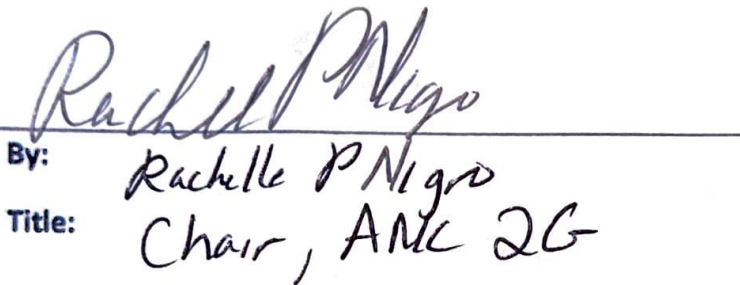 Rachelle P Nigro
By: Rachelle P Nigro
Title: Chair, ANC 2G